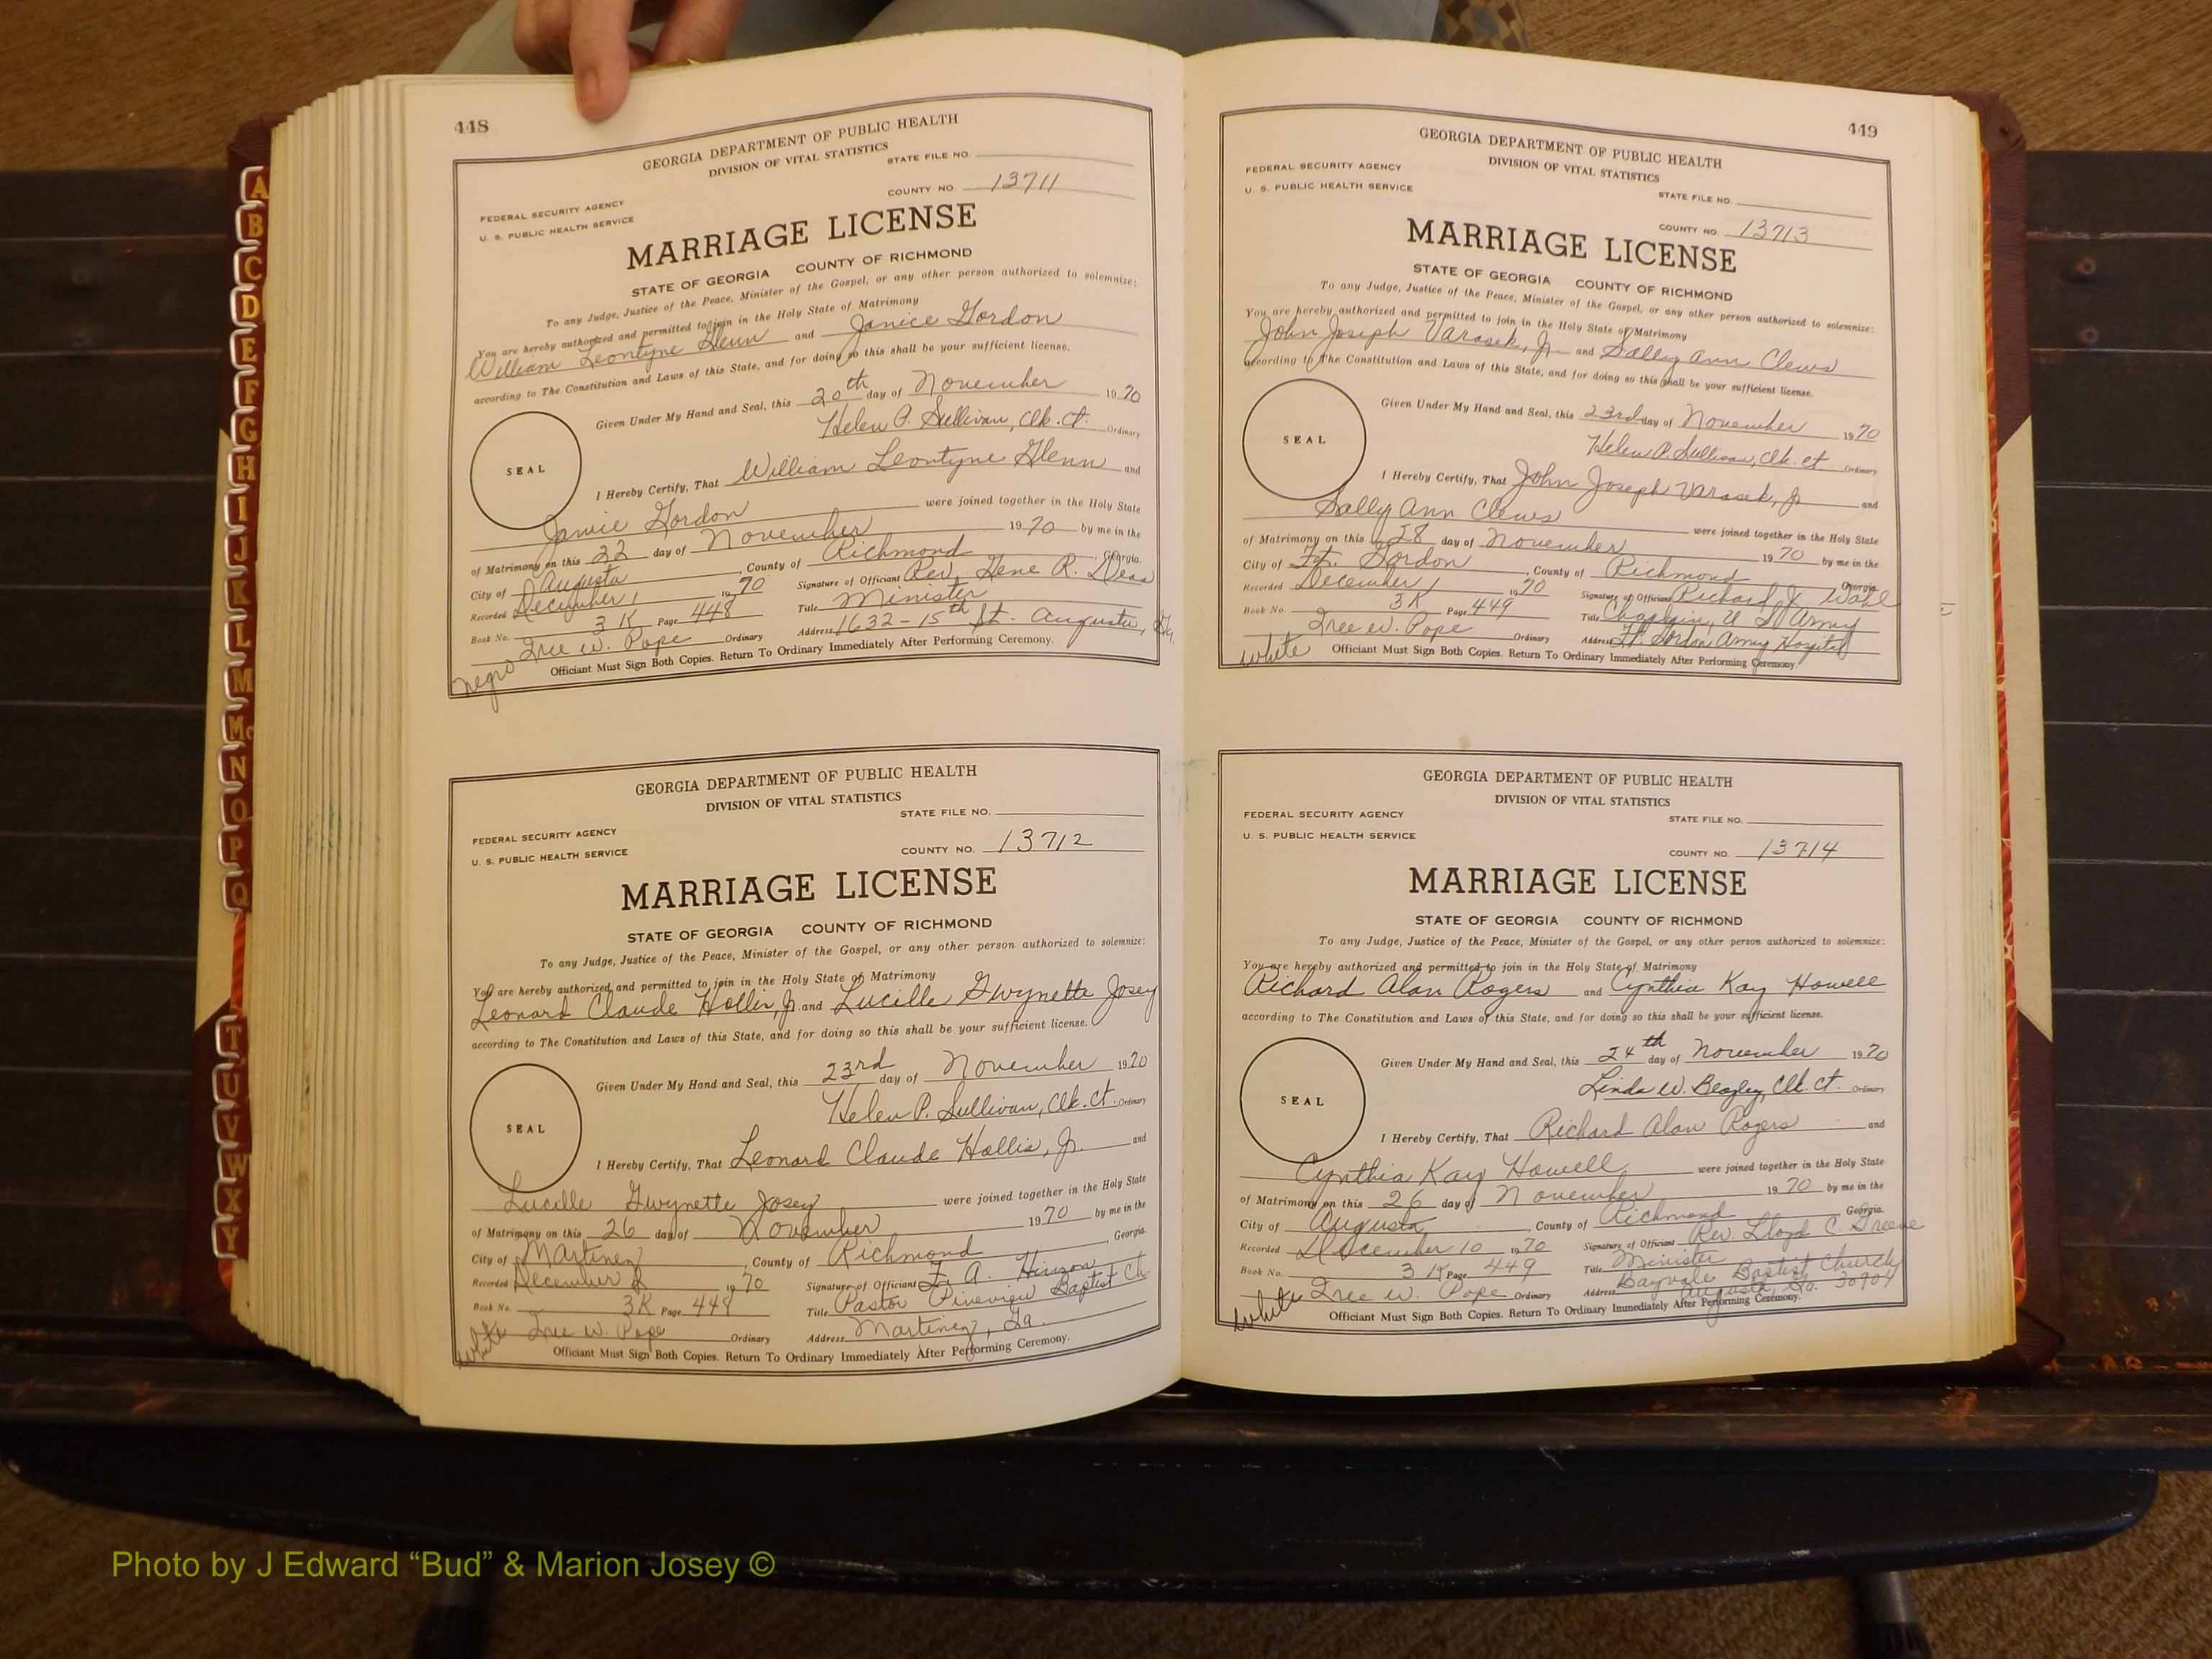 448
GEORGIA DEPARTMENT OF PUBLIC HEALTH
DIVISION OF VITAL STATISTICS
STATE FILE NO.
COUNTY NO. 13711
FEDERAL SECURITY AGENCY
U. S. PUBLIC HEALTH SERVICE
MARRIAGE LICENSE
STATE OF GEORGIA COUNTY OF RICHMOND
To any Judge, Justice of the Peace, Minister of the Gospel, or any other person authorized to solemnize:
You are hereby authorized and permitted to join in the Holy State of Matrimony
William Leontyne Glenn and Janice Gordon
according to The Constitution and Laws of this State, and for doing so this shall be your sufficient license.
Given Under My Hand and Seal, this 20th day of November 1970
Helen P. Sullivan, Clk. Ct. Ordinary
SEAL
I Hereby Certify, That William Leontyne Glenn and
Janice Gordon were joined together in the Holy State
of Matrimony on this 22 day of November 1970 by me in the
City of Augusta, County of Richmond, Georgia.
Recorded December 1 1970 Signature of Officiant Rev. Gene R. Dess
Book No. 3K Page 448 Title Minister
Tree W. Pope Ordinary Address 1632-15th St. Augusta, Ga.
negro Officiant Must Sign Both Copies. Return To Ordinary Immediately After Performing Ceremony.
GEORGIA DEPARTMENT OF PUBLIC HEALTH
DIVISION OF VITAL STATISTICS
STATE FILE NO.
FEDERAL SECURITY AGENCY
U. S. PUBLIC HEALTH SERVICE
COUNTY NO. 13712
MARRIAGE LICENSE
STATE OF GEORGIA COUNTY OF RICHMOND
To any Judge, Justice of the Peace, Minister of the Gospel, or any other person authorized to solemnize:
You are hereby authorized and permitted to join in the Holy State of Matrimony
Leonard Claude Hollis, Jr. and Lucille Gwynette Josey
according to The Constitution and Laws of this State, and for doing so this shall be your sufficient license.
Given Under My Hand and Seal, this 23rd day of November 1970
Helen P. Sullivan, Clk. Ct. Ordinary
SEAL
I Hereby Certify, That Leonard Claude Hollis, Jr. and
Lucille Gwynette Josey were joined together in the Holy State
of Matrimony on this 26 day of November 1970 by me in the
City of Martinez, County of Richmond, Georgia.
Recorded December 2 1970 Signature of Officiant A. Hinson
Book No. 3K Page 448 Title Pastor Pineview Baptist Ch
white Tree W. Pope Ordinary Address Martinez, Ga.
Officiant Must Sign Both Copies. Return To Ordinary Immediately After Performing Ceremony.
449
GEORGIA DEPARTMENT OF PUBLIC HEALTH
DIVISION OF VITAL STATISTICS
FEDERAL SECURITY AGENCY
U. S. PUBLIC HEALTH SERVICE
STATE FILE NO.
COUNTY NO. 13713
MARRIAGE LICENSE
STATE OF GEORGIA COUNTY OF RICHMOND
To any Judge, Justice of the Peace, Minister of the Gospel, or any other person authorized to solemnize:
You are hereby authorized and permitted to join in the Holy State of Matrimony
John Joseph Varasek, Jr. and Sally Ann Clews
according to The Constitution and Laws of this State, and for doing so this shall be your sufficient license.
Given Under My Hand and Seal, this 23rd day of November 1970
Helen P. Sullivan, Clk. Ct Ordinary
SEAL
I Hereby Certify, That John Joseph Varasek, Jr and
Sally Ann Clews were joined together in the Holy State
of Matrimony on this 28 day of November 1970 by me in the
City of Ft. Gordon, County of Richmond Georgia.
Recorded December 1 1970 Signature of Officiant Richard J. Wahl
Book No. 3K Page 449 Title Chaplain, U S Army
Tree W. Pope Ordinary Address Ft. Gordon Army Hospital
white Officiant Must Sign Both Copies. Return To Ordinary Immediately After Performing Ceremony.
GEORGIA DEPARTMENT OF PUBLIC HEALTH
DIVISION OF VITAL STATISTICS
FEDERAL SECURITY AGENCY
U. S. PUBLIC HEALTH SERVICE
STATE FILE NO.
COUNTY NO. 13714
MARRIAGE LICENSE
STATE OF GEORGIA COUNTY OF RICHMOND
To any Judge, Justice of the Peace, Minister of the Gospel, or any other person authorized to solemnize:
You are hereby authorized and permitted to join in the Holy State of Matrimony
Richard Alan Rogers and Cynthia Kay Howell
according to The Constitution and Laws of this State, and for doing so this shall be your sufficient license.
Given Under My Hand and Seal, this 24th day of November 1970
Linda W. Beazley, Clk. Ct. Ordinary
SEAL
I Hereby Certify, That Richard Alan Rogers and
Cynthia Kay Howell were joined together in the Holy State
of Matrimony on this 26 day of November 1970 by me in the
City of Augusta, County of Richmond Georgia.
Recorded December 10 1970 Signature of Officiant Rev. Lloyd C. Greene
Book No. 3K Page 449 Title Minister
Bayvale Baptist Church
white Tree W. Pope Ordinary Address Augusta, Ga. 30904
Officiant Must Sign Both Copies. Return To Ordinary Immediately After Performing Ceremony.
A
B
C
D
E
F
G
H
I
J
K
L
M
Mc
N
O
P
Q
T
U
V
W
X
Y
Photo by J Edward “Bud” & Marion Josey ©